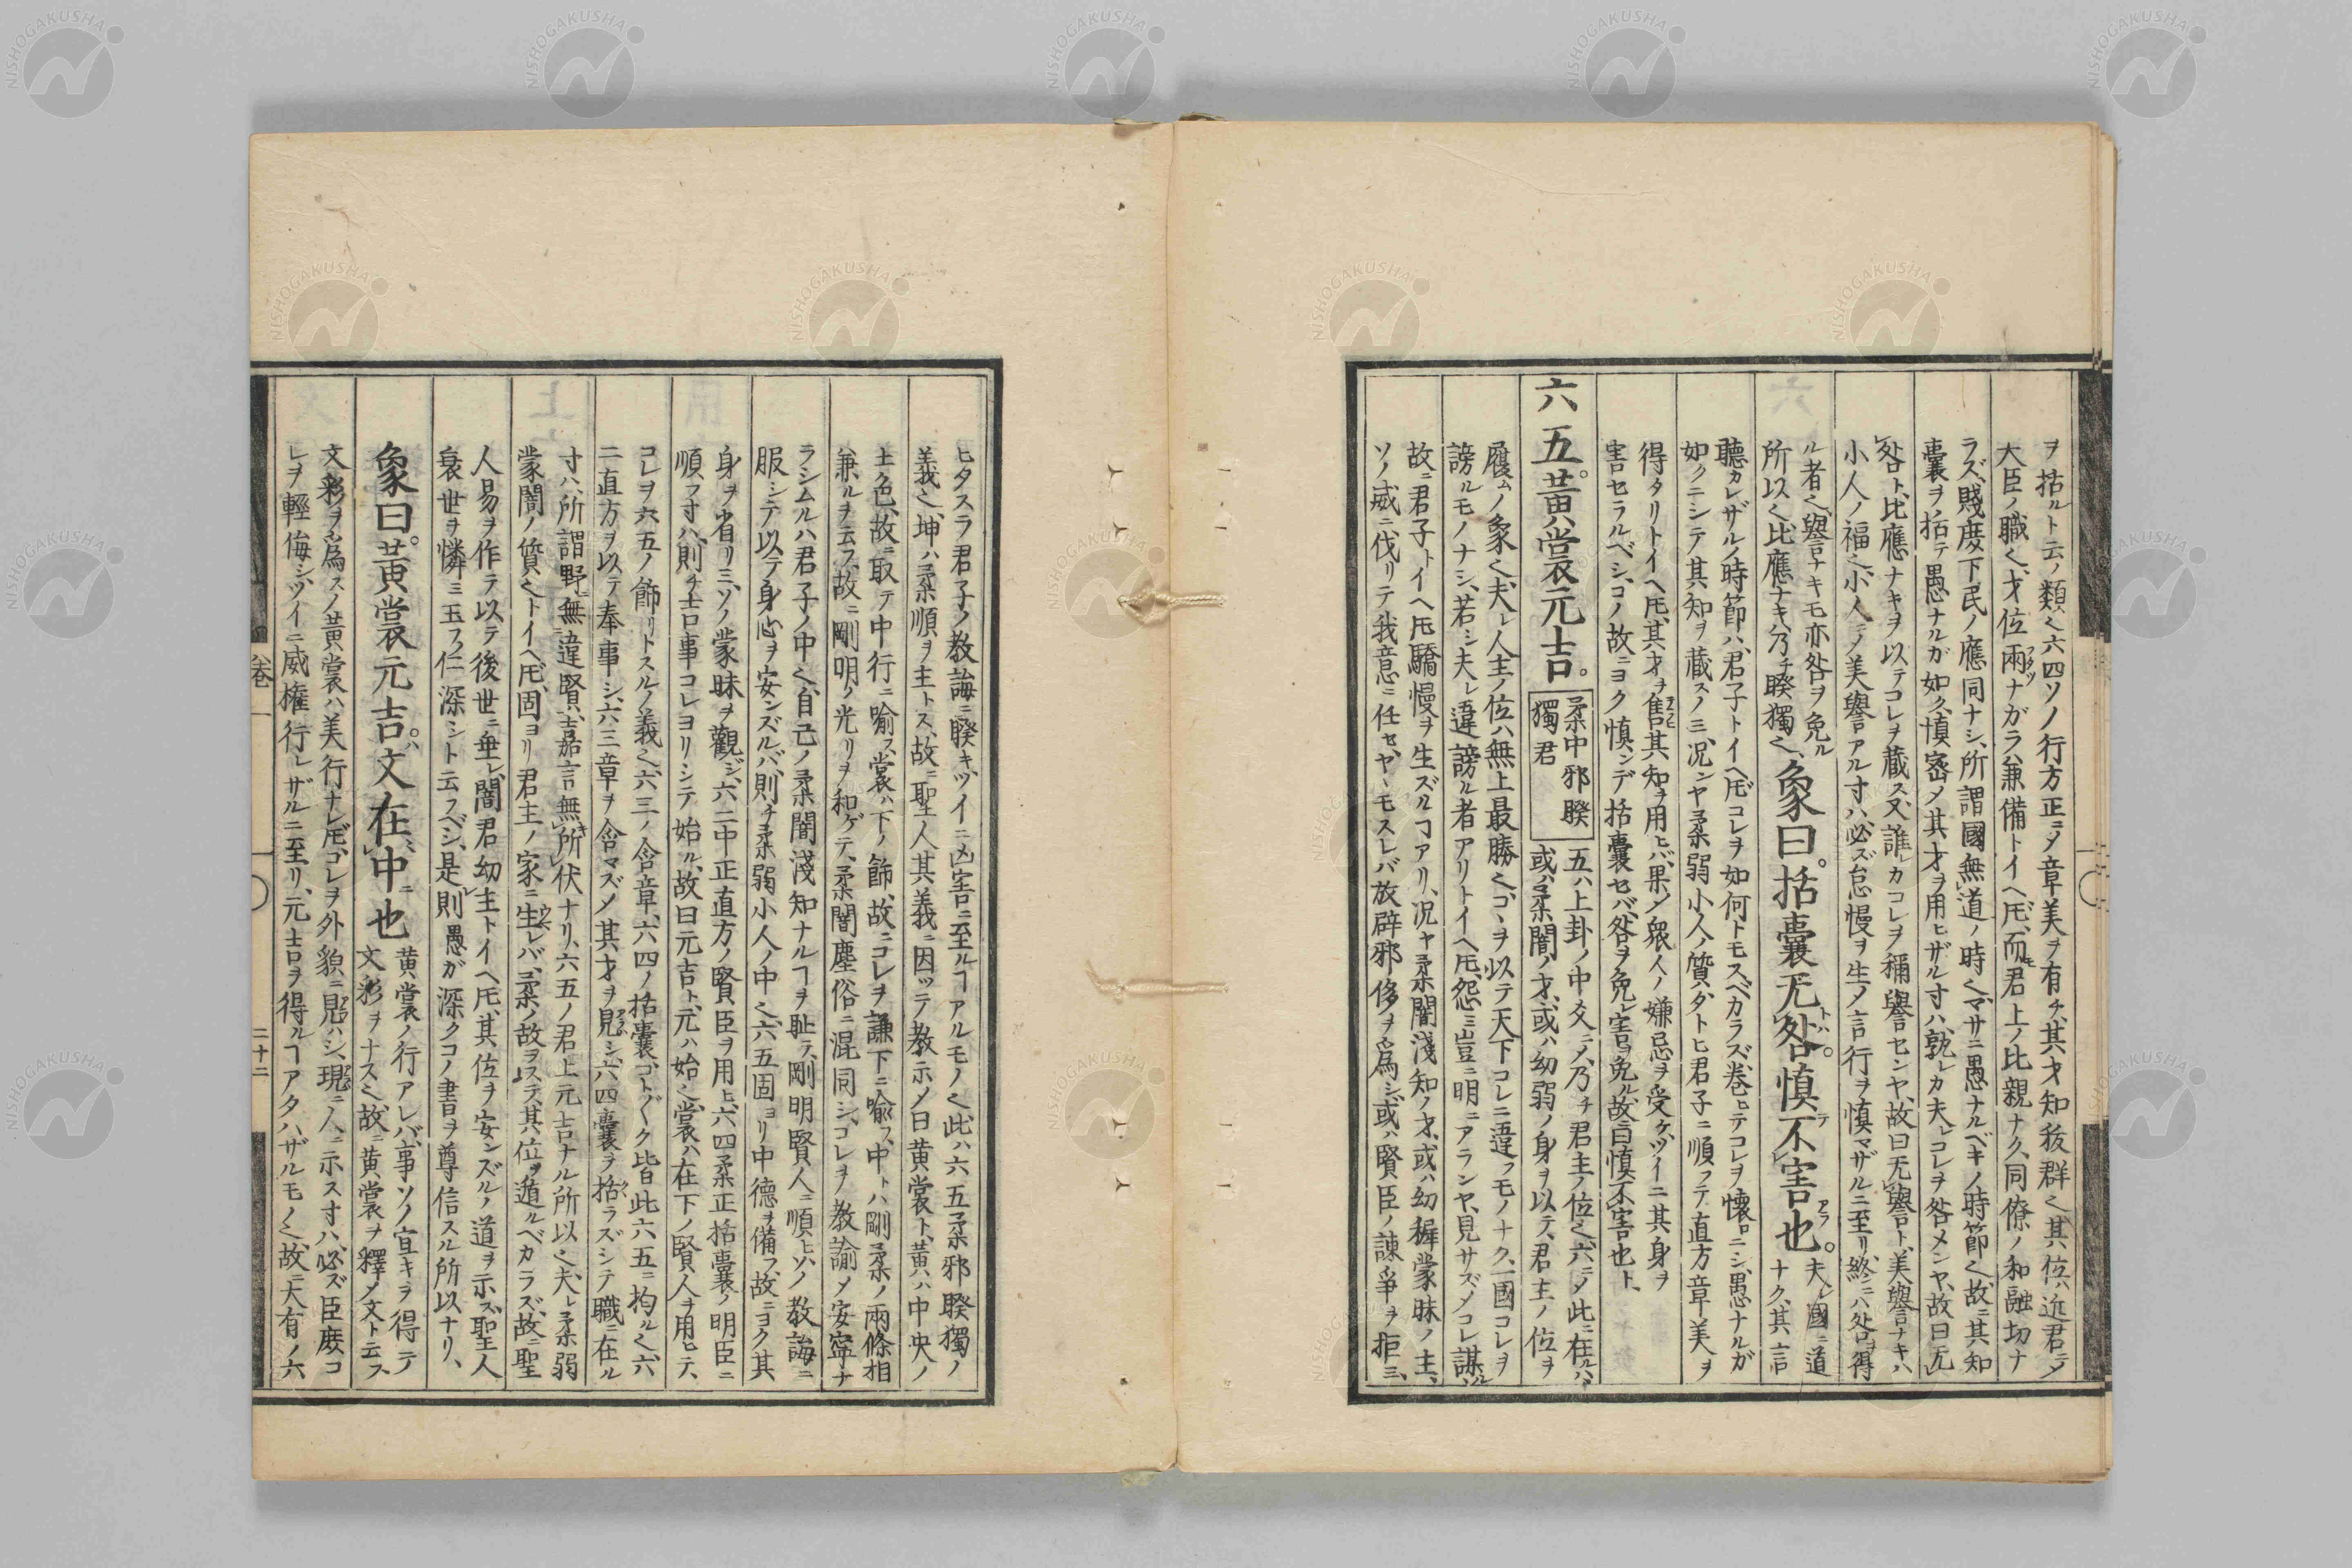 ヲ括ルト云ノ類〱六四ソノ行方正ニ〆章美ヲ有チ其才知抜群〱其位ハ近君ニ〆
大臣ノ職〱才位兩ナガラ兼備トイヘ𪜈、而君上ノ比親ナク、同僚ノ和融切ナ
ラズ、賤庶下民ノ應同ナシ、所謂國無道ノ時〱マサニ愚ナルベキノ時節〱故ニ其知
囊ヲノ括テ愚ナルガ如ク、慎密〆其才ヲ用ヒザル寸ハ、孰レカ夫レコレヲ咎メンヤ、故曰无
咎ト、比應ナキヲ以テコレヲ蔵ス、又誰レカコレヲ稱譽センヤ、故曰无譽ト、美譽ナキハ
小人ノ福〱小人ノ美譽アル寸ハ、必ズ怠慢ヲ生ノ言行ヲ慎マザルニ至リ、終ニハ咎ヲ得
ル者〱、譽ナキモ亦咎ヲ免ル
所以〱比應ナキハ乃チ睽獨〱、
象曰。括囊无咎。慎不害也。
夫レ國ニ道
ナク、其言
聽カレザルノ時節ハ、君子トイヘ𪜈コレヲ如何トモスベカラズ、巻ヒテコレヲ懐ロニシ、愚ナルガ
如クニシテ其知ヲ蔵スノミ、况ンヤ柔弱小人ノ質ダトヒ君子ニ順フテ直方章美ヲ
得タリトイヘ𪜈、其才ヲ售其知ヲ用ヒバ、果〆衆人ノ嫌忌ヲ受ケ、ツイニ其身ヲ
害セラルベシ、コノ故ニヨク慎ンデ括囊セバ、咎ヲ免レ害ヲ免ル、故曰慎不害也ト、
六五。黄裳元吉。
柔中邪睽
獨君
五ハ上卦ノ中爻ニ〆、乃チ君主ノ位〱六ニ〆此ニ在ルハ、
或ハ柔闇ノ才、或ハ幼弱ノ身ヲ以テ、君主ノ位ヲ
履ムノ象〱夫レ人主ノ位ハ無上最勝〱、コヽヲ以テ天下コレニ違フモノナク、一國コレヲ
謗ルモノナシ、若シ夫レ違謗ル者アリトイヘ𪜈、怨ミ豈ニ明ニアランヤ、見サズ〆コレ謀ル、
故ニ君子トイヘ𪜈驕慢ヲ生ズルヿアリ、况ヤ柔闇淺知ノ才、或ハ幼穉蒙昧ノ主、
ソノ威ニ伐リテ我意ニ任セ、ヤヽモスレバ放辟邪侈ヲ爲シ、或ハ賢臣ノ諫爭ヲ拒ミ、
ヒタスラ君子ノ教誨ニ睽キ、ツイニ凶害ニ至ルヿアルモノ〱此ハ六五柔邪睽獨ノ
義〱、坤ハ柔順ヲ主トス、故ニ聖人其義ニ因ッテ教示〆曰黄裳ト、黄ハ中央ノ
土色、故ニ取テ中行ニ喻フ、裳ハ下ノ飾、故ニコレヲ謙下ニ喻フ、中トハ剛柔ノ兩條相
兼ルヲ云フ、故ニ剛明ノ光リヲ和ゲテ、柔闇塵俗ニ混同シ、コレヲ教諭〆安寧ナ
ラシムルハ君子ノ中〱、自己ノ柔闇淺知ナルヿヲ耻テ、剛明賢人ニ順ヒ、ソノ教誨ニ
服シテ以テ身心ヲ安ンズルハ、則チ柔弱小人ノ中〱、六五固ヨリ中德ヲ備フ、故ニヨク其
身ヲ省リミ、ソノ蒙昧ヲ觀ジ、六二中正直方ノ賢臣ヲ用ヒ、六四柔正括囊ノ明臣ニ
順フ寸ハ、則チ吉事コレヨリシテ始ル、故曰元吉ト、元ハ始〱、裳ハ在下ノ賢人ヲ用ヒテ、
コレヲ六五ノ飾リトスルノ義〱、六三ノ含章、六四ノ括囊コト〲ク皆此六五ニ均ル〱六
二直方ヲ以テ奉事シ、六三章ヲ含マズ〆其才ヲ見シ、六四囊ヲ括ラズシテ職ニ在ル
寸ハ、所謂野無違賢、嘉言無所伏ナリ、六五ノ君上元吉ナル所以〱夫レ柔弱
蒙闇ノ質〱トイヘ𪜈、固ヨリ君主ノ家ニ生レバ、柔ノ故ヲステ、其位ヲ遁ルベカラズ、故ニ聖
人易ヲ作テ以テ後世ニ垂レ、闇君幼主トイヘ𪜈、其位ヲ安ンズルノ道ヲ示ズ、聖人
衰世ヲ憐ミ玉フ仁深シト云フベシ、是則愚ガ深クコノ書ヲ尊信スル所以ナリ、
象曰。黄裳元吉。文在中也
黄裳ノ行アレバ、事ソノ宜キヲ得テ
文彩ヲナス〱故ニ黄裳ヲ釋〆文ト云ス
文彩ヲ爲スノ黄裳ハ美行ナレ𪜈、コレヲ外貌ニ見ハシ、現ニ人ニ示ス寸ハ、必ズ臣庶コ
レヲ輕侮シ、ツイニ威權行レザルニ至リ、元吉ヲ得ルヿアタハザルモノ〱故ニ大有ノ六
卷一
二十二